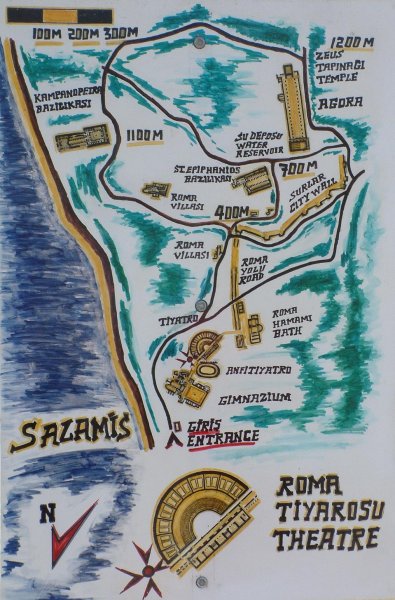 100M 200M 300M
1200M
ZEUS
TAPINAĞI
TEMPLE
AGORA
KAMPANOPETRA
BAZILIKASI
1100M
SU DEPOSU
WATER
RESERVOIR
700M
ST. EPIPHANIOS
BAZILIKASI
SURLAR
CITY WALL
ROMA
VILLASI
400M
ROMA
VILLASI
ROMA
YOLU
ROAD
TİYATRO
ROMA
HAMAMI
BATH
ANFITIYATRO
GIMNAZIUM
SALAMİS
GİRİS
ENTRANCE
N
ROMA
TİYAROSU
THEATRE